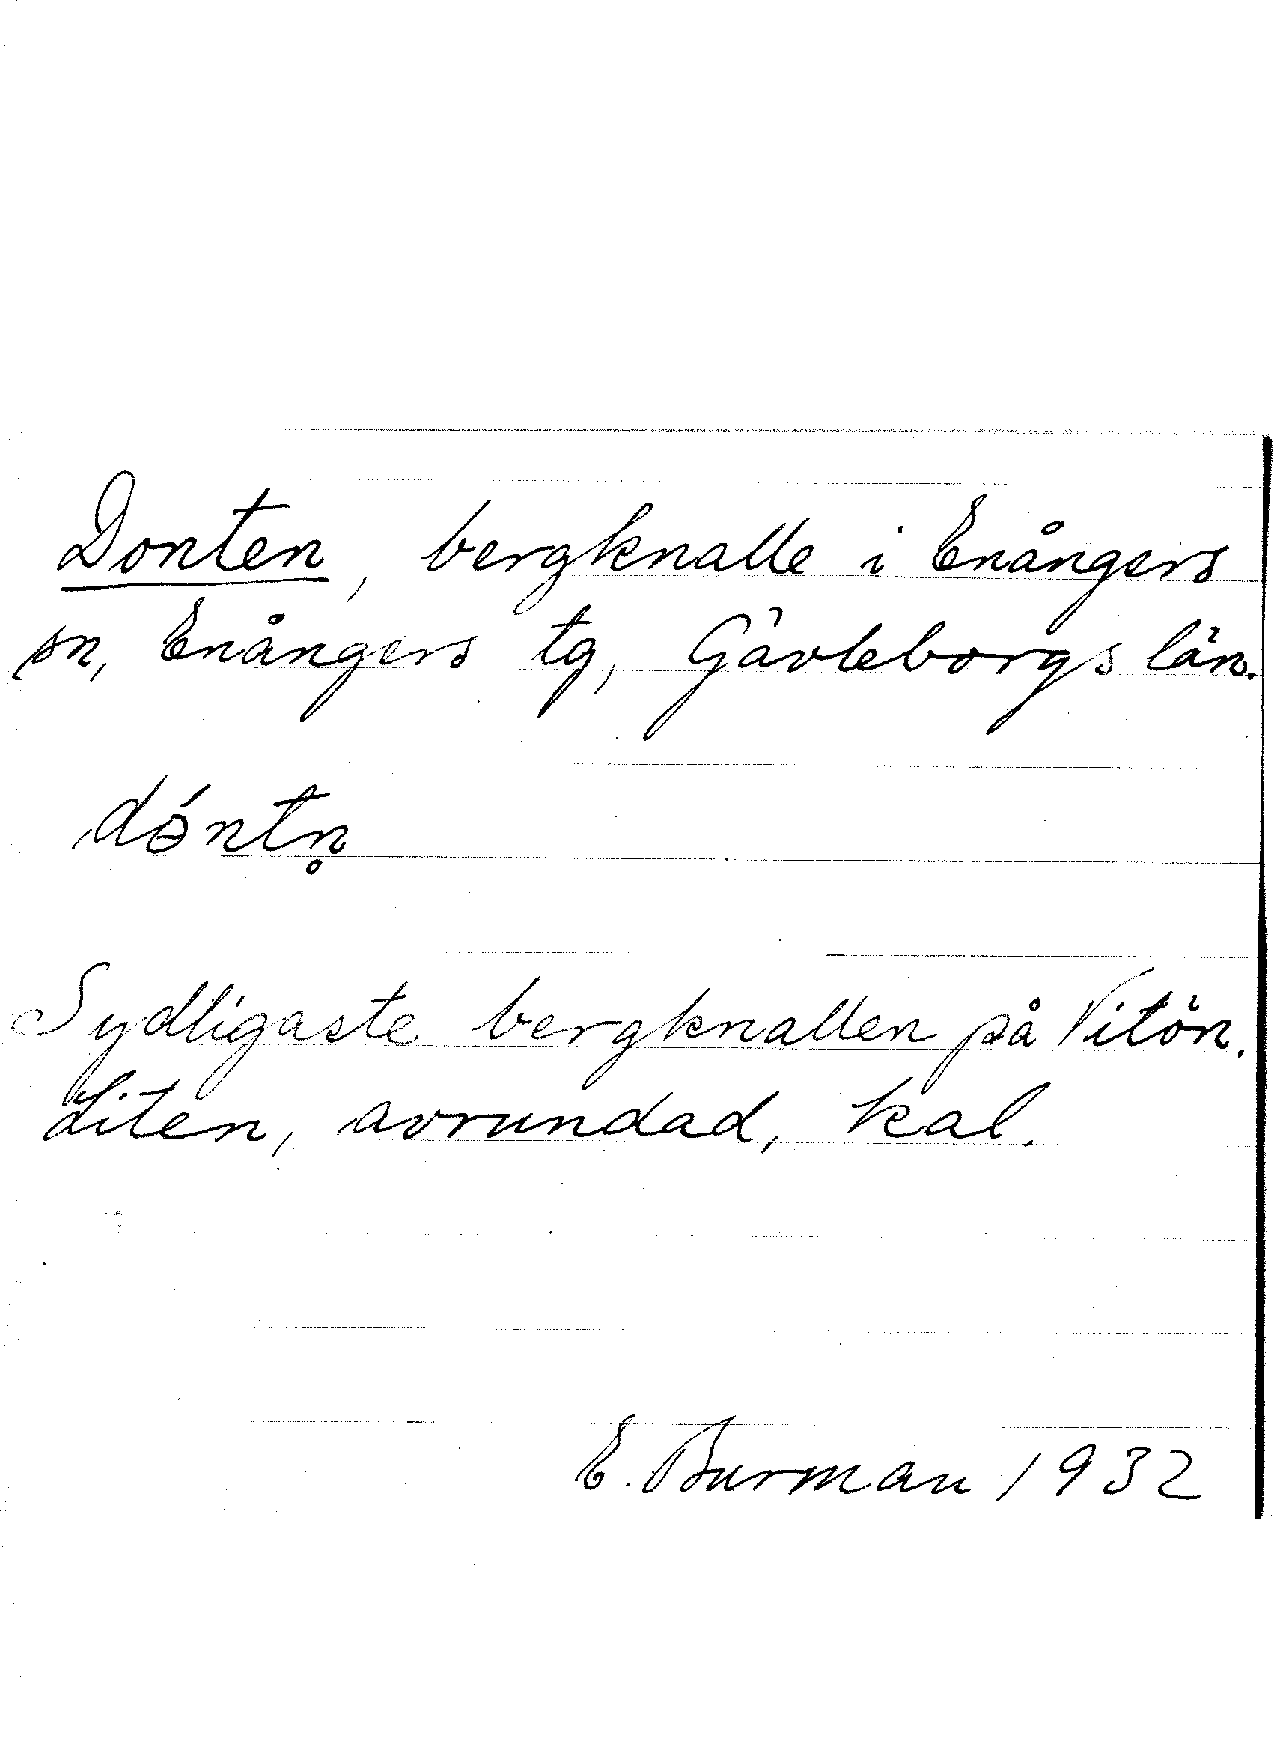 Donten, bergknalle i Enångers
sn, Enångers tg, Gävleborgs län.
dɵ́ntn̥
Sydligaste bergknallen på Vitön.
Liten, avrundad, kal.
E. Burman 1932